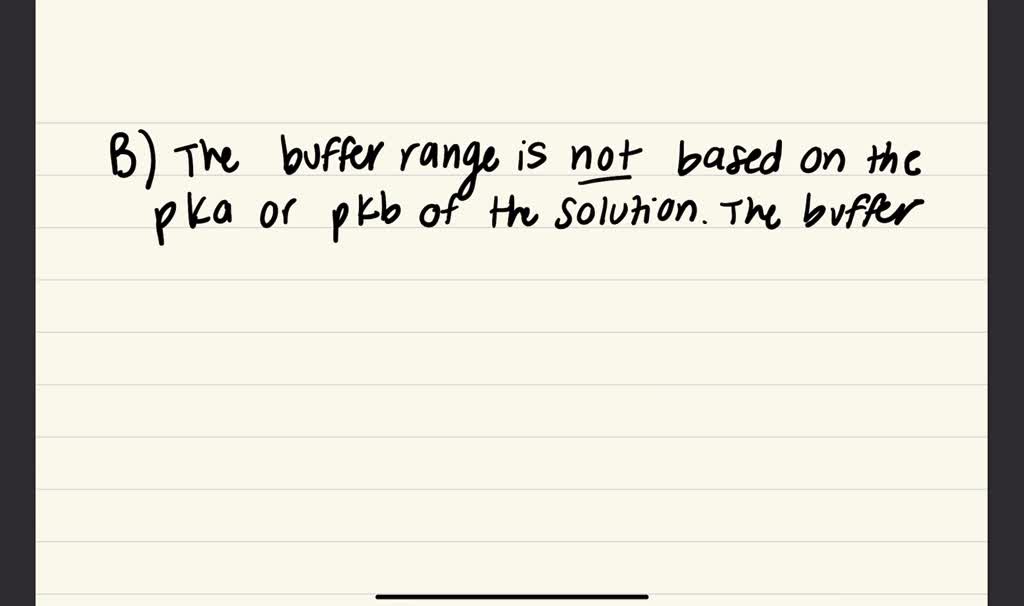 B) The buffer range is not based on the
pKa or pKb of the solution. The buffer